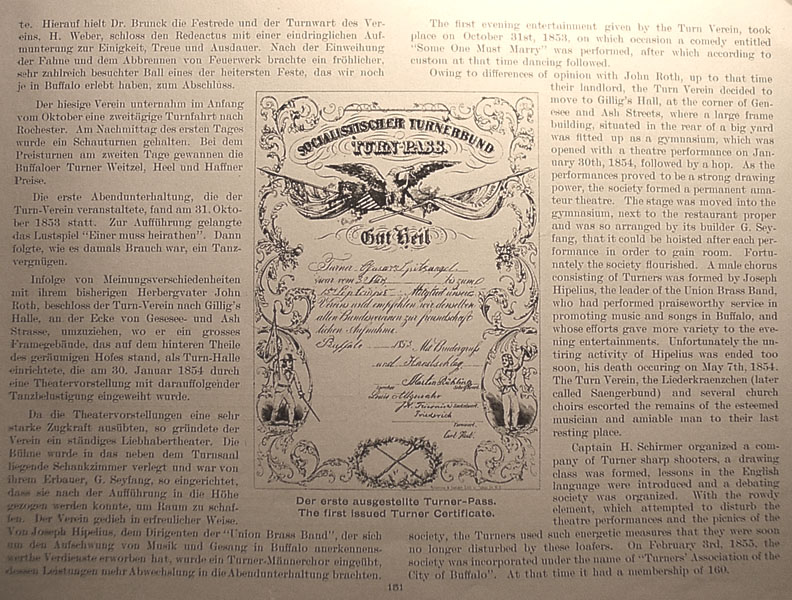 te. Hierauf hielt Dr. Brunck die Festrede und der Turnwart des Ver-
eins, H. Weber, schloss den Redeactus mit einer eindringlichen Auf-
munterung zur Einigkeit, Treue und Ausdauer. Nach der Einweihung
der Fahne und dem Abbrennen von Feuerwerk brachte ein fröhlicher,
sehr zahlreich besuchter Ball eines der heitersten Feste, das wir noch
je in Buffalo erlebt haben, zum Abschluss.
Der hiesige Verein unternahm im Anfang
vom Oktober eine zweitägige Turnfahrt nach
Rochester. Am Nachmittag des ersten Tages
wurde ein Schauturnen gehalten. Bei dem
Preisturnen am zweiten Tage gewannen die
Buffaloer Turner Weitzel, Heel und Haffner
Preise.
Die erste Abendunterhaltung, die der
Turn-Verein veranstaltete, fand am 31. Okto-
ber 1853 statt. Zur Aufführung gelangte
das Lustspiel "Einer muss heirathen". Dann
folgte, wie es damals Brauch war, ein Tanz-
vergnügen.
Infolge von Meinungsverschiedenheiten
mit ihrem bisherigen Herbergvater John
Roth, beschloss der Turn-Verein nach Gillig's
Halle, an der Ecke von Gesesee- und Ash
Strasse, umzuziehen, wo er ein grosses
Framegebäude, das auf dem hinteren Theile
des geräumigen Hofes stand, als Turn-Halle
einrichtete, die am 30. Januar 1854 durch
eine Theatervorstellung mit darauffolgender
Tanzbelustigung eingeweiht wurde.
Da die Theatervorstellungen eine sehr
starke Zugkraft ausübten, so gründete der
Verein ein ständiges Liebhabertheater. Die
Bühne wurde in das neben dem Turnsaal
liegende Schankzimmer verlegt und war von
ihrem Erbauer, G. Seyfang, so eingerichtet,
dass sie nach der Aufführung in die Höhe
gezogen werden konnte, um Raum zu schaf-
fen. Der Verein gedieh in erfreulicher Weise.
Von Joseph Hipelius, dem Dirigenten der "Union Brass Band", der sich
um den Aufschwung von Musik und Gesang in Buffalo anerkennens-
werthe Verdienste erworben hat, wurde ein Turner-Männerchor eingeübt,
dessen Leistungen mehr Abwechslung in die Abendunterhaltung brachten.
SOCIALISTISCHER TURNERBUND
TURN-PASS.
Gut Heil
Turner
war vom
Mitglied unseres
Vereins und empfehlen wir denselben
allen Bundesvereinen zur freundschaft
lichen Aufnahme.
Buffalo 1853. Mit Bundesgruß
und Handschlag
Der erste ausgestellte Turner-Pass.
The first issued Turner Certificate.
The first evening entertainment given by the Turn Verein, took
place on October 31st, 1853, on which occasion a comedy entitled
"Some One Must Marry" was performed, after which according to
custom at that time dancing followed.
Owing to differences of opinion with John Roth, up to that time
their landlord, the Turn Verein decided to
move to Gillig's Hall, at the corner of Gen-
esee and Ash Streets, where a large frame
building, situated in the rear of a big yard
was fitted up as a gymnasium, which was
opened with a theatre performance on Jan-
uary 30th, 1854, followed by a hop. As the
performances proved to be a strong drawing
power, the society formed a permanent ama-
teur theatre. The stage was moved into the
gymnasium, next to the restaurant proper
and was so arranged by its builder G. Sey-
fang, that it could be hoisted after each per-
formance in order to gain room. Fortu-
nately the society flourished. A male chorus
consisting of Turners was formed by Joseph
Hipelius, the leader of the Union Brass Band
who had performed praiseworthy service in
promoting music and songs in Buffalo, and
whose efforts gave more variety to the eve-
ning entertainments. Unfortunately the un-
tiring activity of Hipelius was ended too
soon, his death occuring on May 7th, 1854.
The Turn Verein, the Liederkraenzchen (later
called Saengerbund) and several church
choirs escorted the remains of the esteemed
musician and amiable man to their last
resting place.
Captain H. Schirmer organized a com-
pany of Turner sharp shooters, a drawing
class was formed, lessons in the English
language were introduced and a debating
society was organized. With the rowdy
element, which attempted to disturb the
theatre performances and the picnics of the
society, the Turners used such energetic measures that they were soon
no longer disturbed by these loafers. On February 3rd, 1855, the
society was incorporated under the name of "Turners' Association of the
City of Buffalo". At that time it had a membership of 160.
151